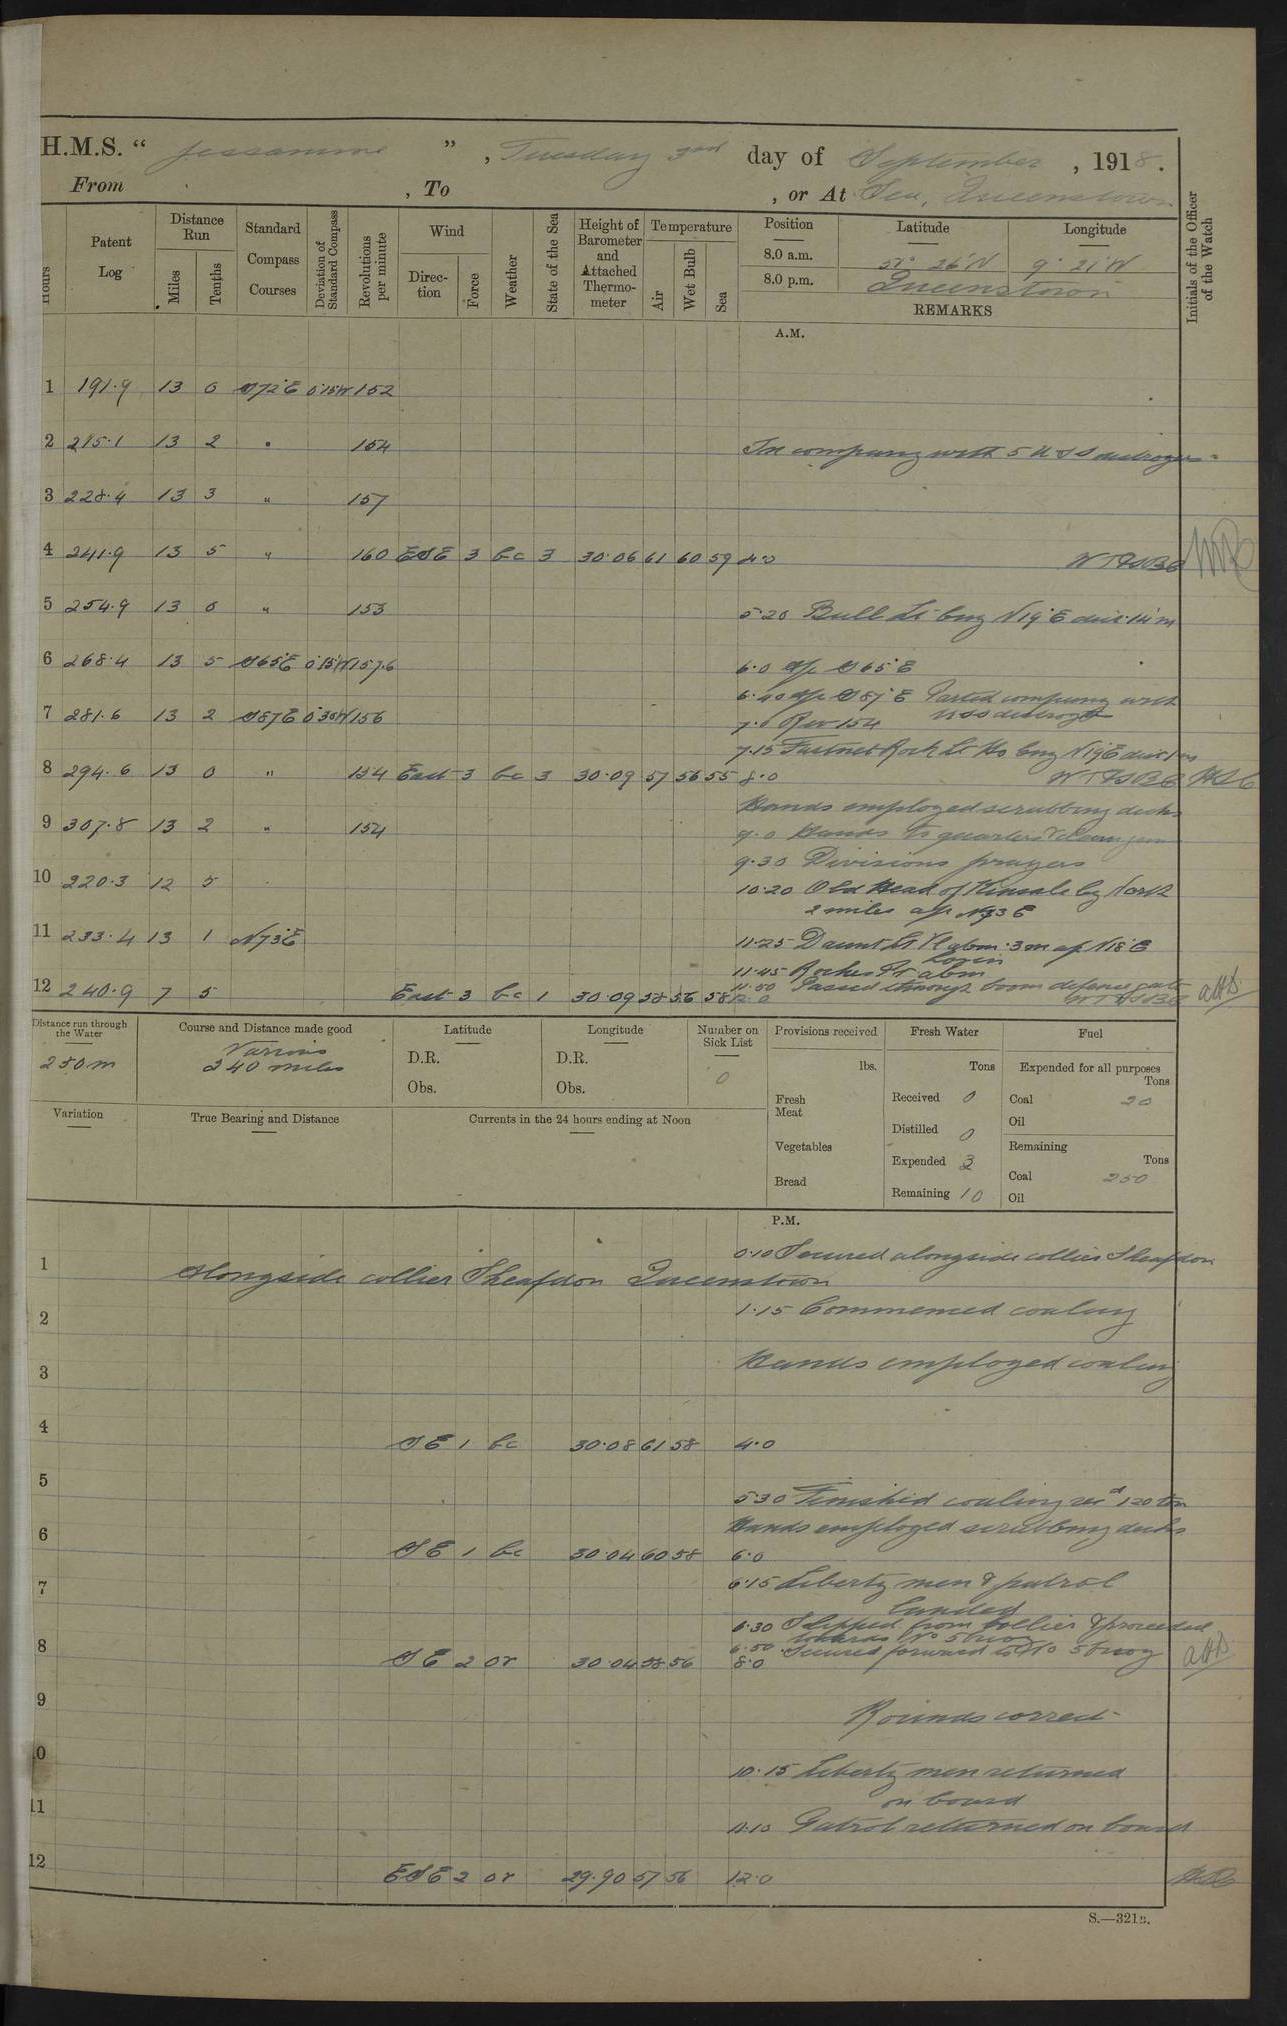 H.M.S. " Jessamine " , Tuesday 3rd day of September , 1918.
From , To , or At Sea, Queenstown
Hours
Patent Log
Distance Run
Miles
Tenths
Standard Compass Courses
Deviation of Standard Compass
Revolutions per minute
Wind
Direction
Force
Weather
State of the Sea
Height of Barometer and Attached Thermometer
Temperature
Air
Wet Bulb
Sea
Position
Latitude
Longitude
8.0 a.m. 51° 26'N 9° 21'W
8.0 p.m. Queenstown
REMARKS
Initials of the Officer of the Watch
A.M.
1 191.9 13 0 S72°E 0°15'W 152
2 215.1 13 2 " 154 In company with 5 USS destroyers
3 228.4 13 3 " 157
4 241.9 13 5 " 160 ESE 3 bc 3 30.06 61 60 59 4.0
5 254.9 13 0 " 153 5.20 Bull Lt brg N19°E dist 14'm
6 268.4 13 5 S65°E 0°15'W 157.6 6.0 a/c S65°E
6.40 a/c S87°E Parted company with
USS destroyers
7 281.6 13 2 S87E 0°30'W 156 7.0 Rev 154
7.15 Fastnet Rock Lt Ho brg N19°E dist 1m
8 294.6 13 0 " 154 East 3 bc 3 30.09 57 56 55 8.0
Hands employed scrubbing decks
9 307.8 13 2 " 154 9.0 Hands to quarters & clean guns
9.30 Divisions prayers
10 220.3 12 5 10.20 Old Head of Kinsale brg North
2 miles a/c N73E
11 233.4 13 1 N73°E 11.25 Daunt Lt Vl abm 3m a/c N18°E
11.45 Roches Pt abm
11.50 Passed through boom defence gate
12 240.9 7 5 East 3 bc 1 30.09 58 56 58 12.0
Distance run through the Water
250m
Course and Distance made good
Various
240 miles
Latitude
D.R.
Obs.
Longitude
D.R.
Obs.
Number on Sick List
0
Provisions received
lbs.
Fresh Meat
Vegetables
Bread
Fresh Water
Tons
Received 0
Distilled 0
Expended 3
Remaining 10
Fuel
Expended for all purposes
Tons
Coal 20
Oil
Remaining
Tons
Coal 250
Oil
Variation
True Bearing and Distance
Currents in the 24 hours ending at Noon
P.M.
0.10 Secured alongside collier Sheafdon
1 Alongside collier Sheafdon Queenstown
1.15 Commenced coaling
2
3 Hands employed coaling
4 SE 1 bc 30.08 61 58 4.0
5 5.30 Finished coaling recd 120 ton
Hands employed scrubbing decks
6 SE 1 bc 30.04 60 58 6.0
7 6.15 Liberty men & patrol
landed
6.30 Slipped from collier & proceeded
towards No 5 buoy
6.50 Secured forward to No 5 buoy
8 SE 2 or 30.04 58 56 8.0
9 Rounds correct
10 10.15 Liberty men returned
on board
11 11.10 Patrol returned on board
12 ESE 2 or 29.90 57 56 12.0
S.—321B.